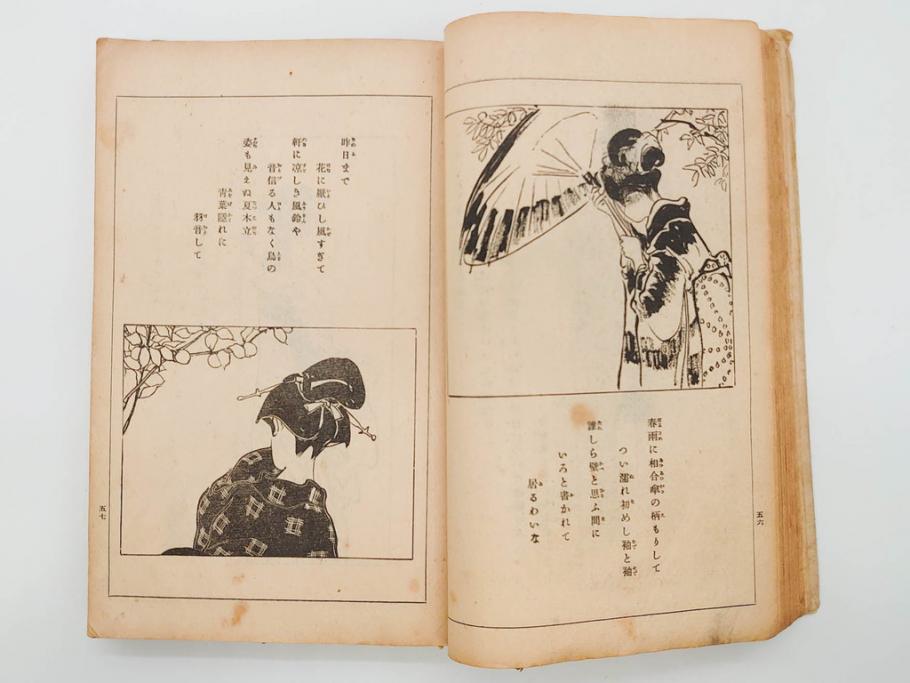 春雨に相合傘の柄もりして
つい濡れ初めし袖と袖
誰しら壁と思ふ間に
いろと書かれて
居るわいな
五六
昨日まで
花に厭ひし風すぎて
軒に凉しき風鈴や
音信る人もなく鳥の
姿も見えぬ夏木立
青葉隠れに
羽音して
五七